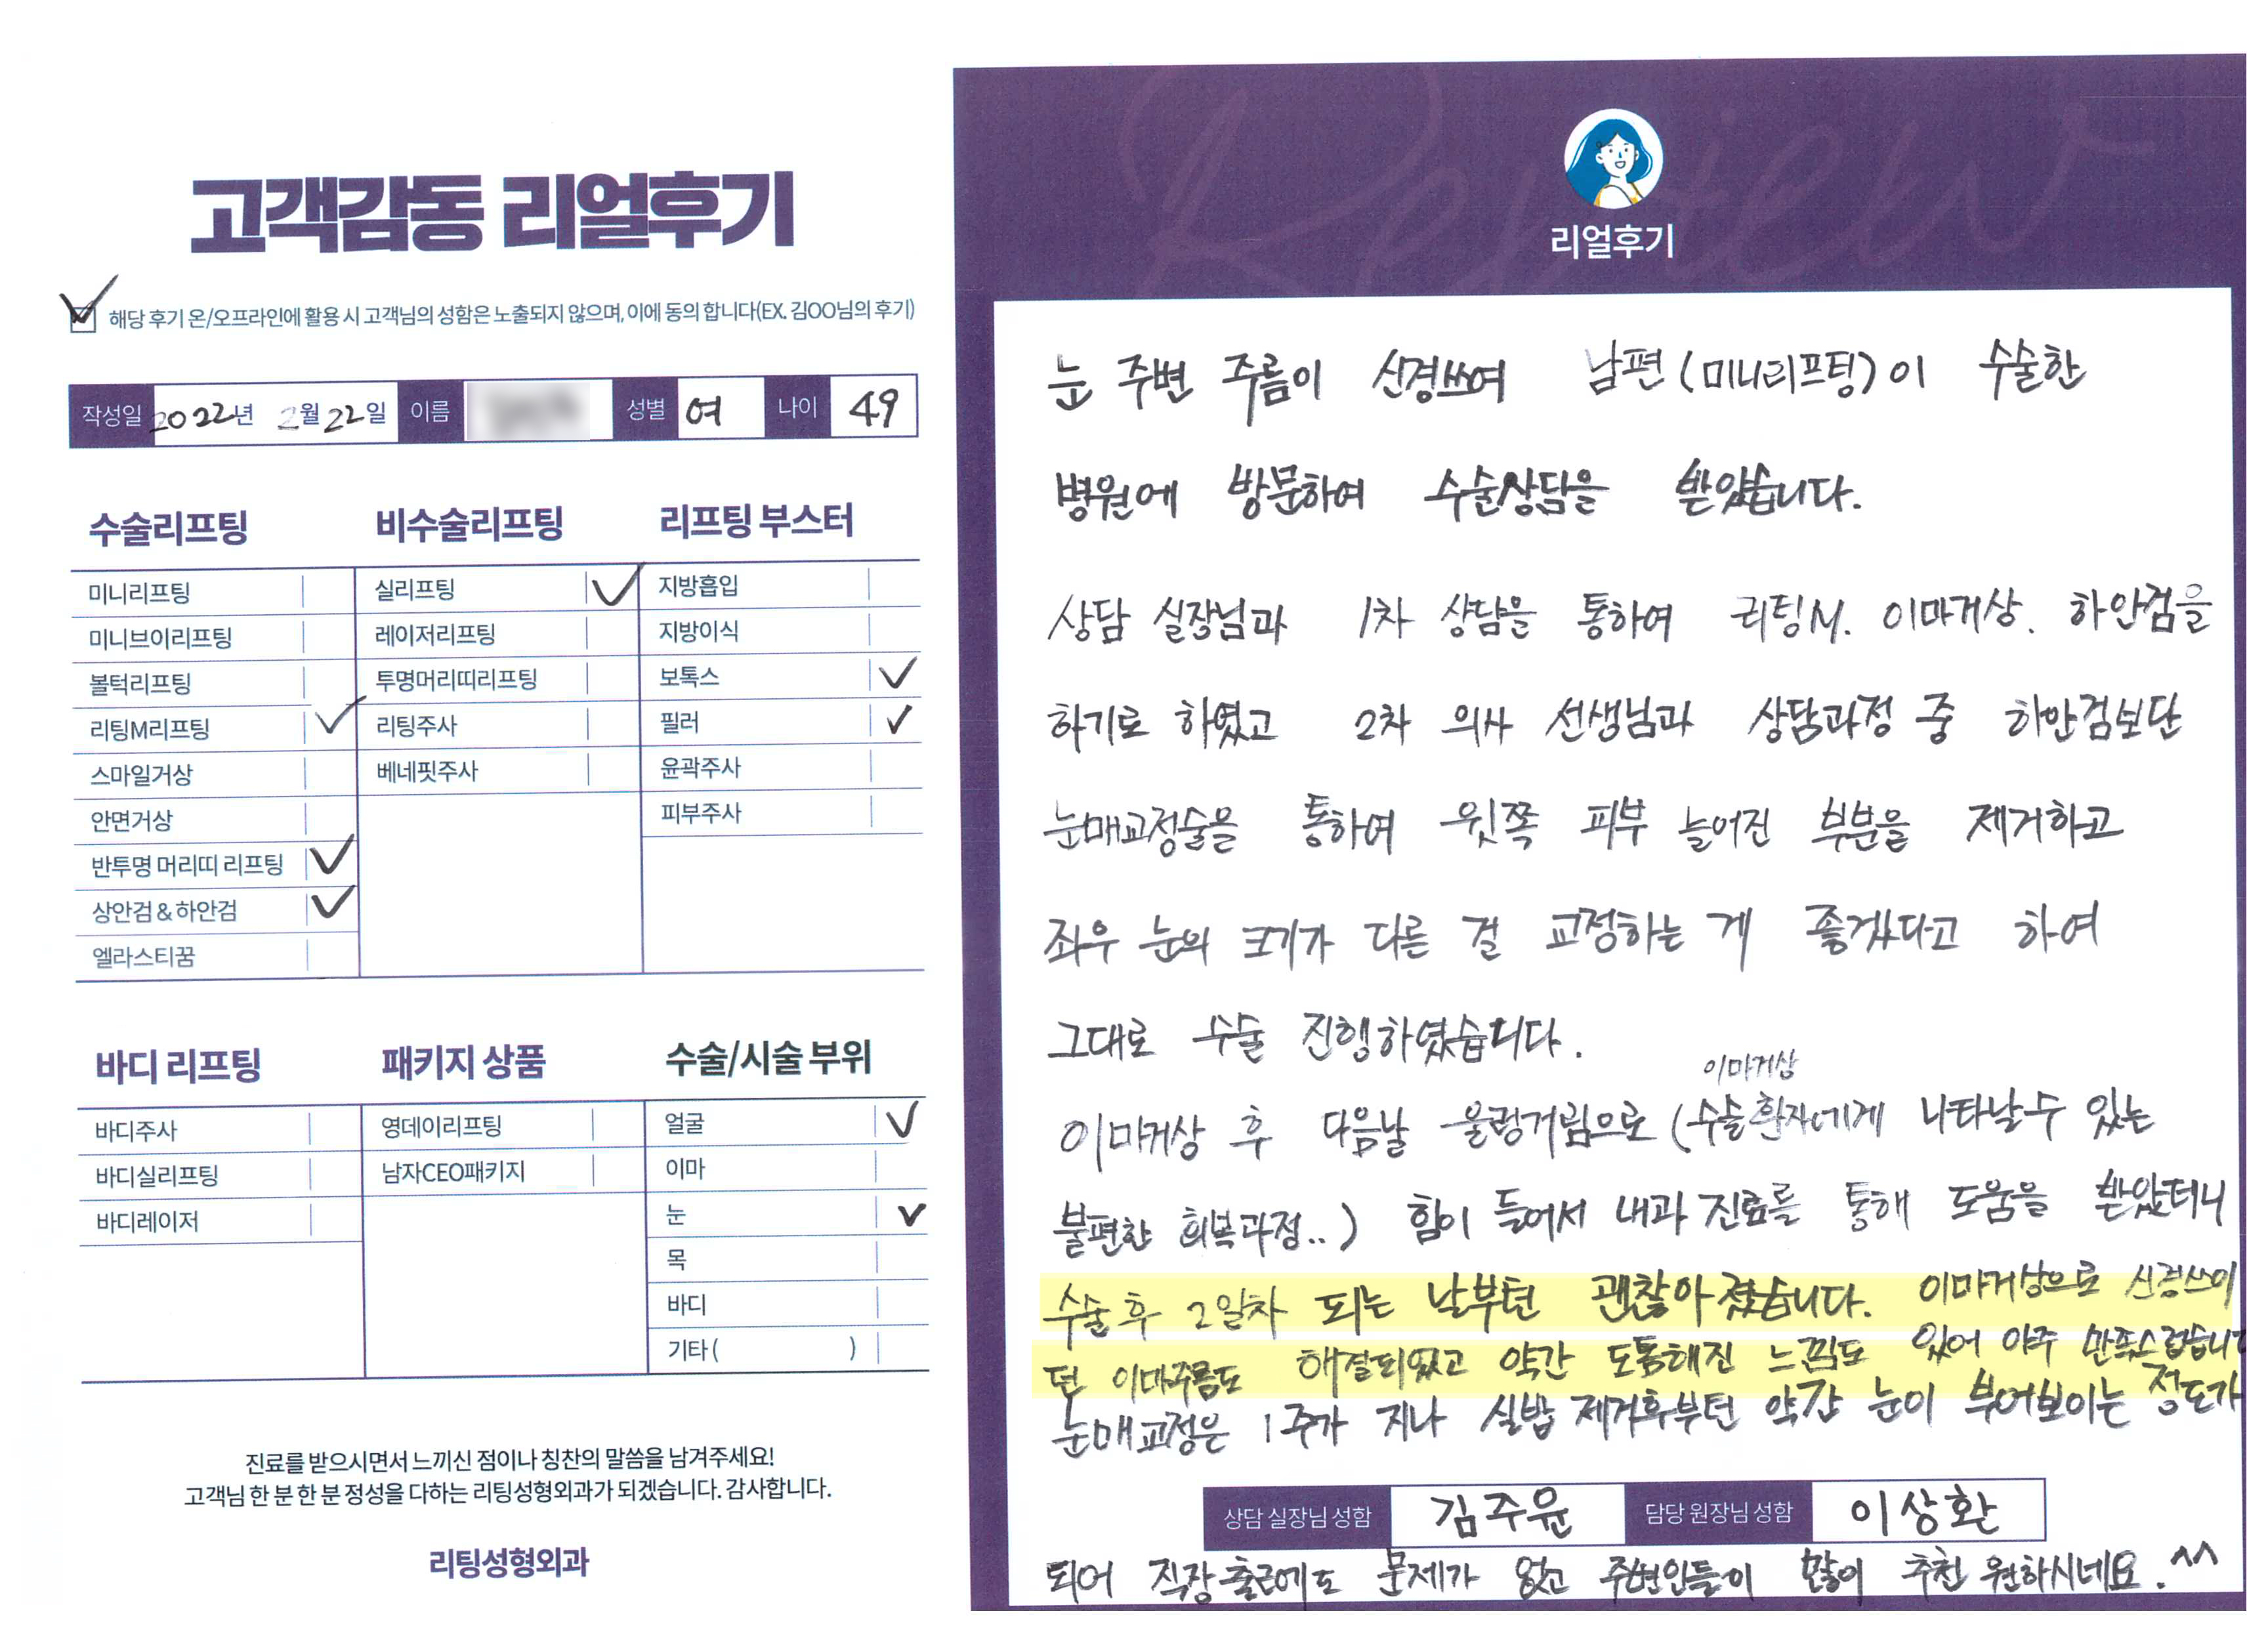 고객감동 리얼후기
해당 후기 온/오프라인에 활용 시 고객님의 성함은 노출되지 않으며, 이에 동의 합니다(EX. 김OO님의 후기)
작성일 2022년 2월 22일 이름 성별 여 나이 49
수술리프팅
미니리프팅
미니브이리프팅
볼턱리프팅
리팅M리프팅
스마일거상
안면거상
반투명 머리띠 리프팅
상안검 & 하안검
엘라스티꿈
비수술리프팅
실리프팅
레이저리프팅
투명머리띠리프팅
리팅주사
베네핏주사
리프팅 부스터
지방흡입
지방이식
보톡스
필러
윤곽주사
피부주사
바디 리프팅
바디주사
바디실리프팅
바디레이저
패키지 상품
영데이리프팅
남자CEO패키지
수술/시술 부위
얼굴
이마
눈
목
바디
기타 ( )
진료를 받으시면서 느끼신 점이나 칭찬의 말씀을 남겨주세요!
고객님 한 분 한 분 정성을 다하는 리팅성형외과가 되겠습니다. 감사합니다.
리팅성형외과
Review
리얼후기
눈 주변 주름이 신경쓰여 남편(미니리프팅)이 수술한
병원에 방문하여 수술상담을 받았습니다.
상담 실장님과 1차 상담을 통하여 리팅M. 이마거상. 하안검을
하기로 하였고 2차 의사 선생님과 상담과정 중 하안검보단
눈매교정술을 통하여 윗쪽 피부 늘어진 부분을 제거하고
좌우 눈의 크기가 다른 걸 교정하는 게 좋겠다고 하여
그대로 수술 진행하였습니다.
이마거상
이마거상 후 다음날 울렁거림으로 (수술환자에게 나타날수 있는
불편한 회복과정..) 힘이 들어서 내과 진료를 통해 도움을 받았더니
수술 후 2일차 되는 날부턴 괜찮아졌습니다. 이마거상으로 신경쓰이
던 이마주름도 해결되었고 약간 도톰해진 느낌도 있어 아주 만족스럽습니다
눈매교정은 1주가 지나 실밥 제거후부턴 약간 눈이 부어보이는 정도가
상담 실장님 성함 김주윤 담당 원장님 성함 이상환
되어 직장 출근에도 문제가 없고 주변인들이 많이 추천 원하시네요. ^^